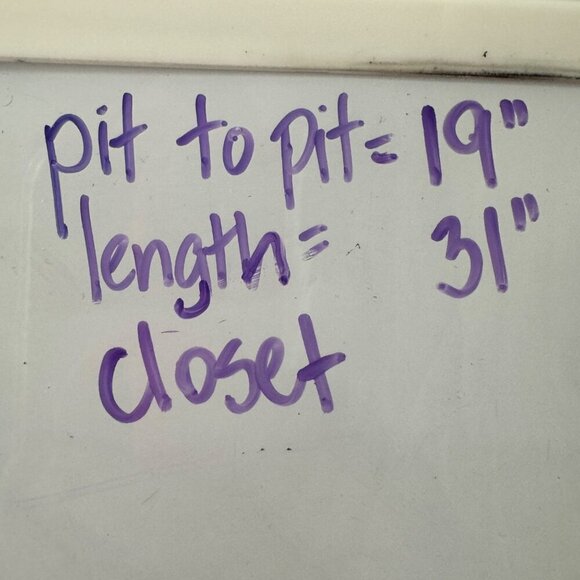 pit to pit= 19"
length= 31"
closet